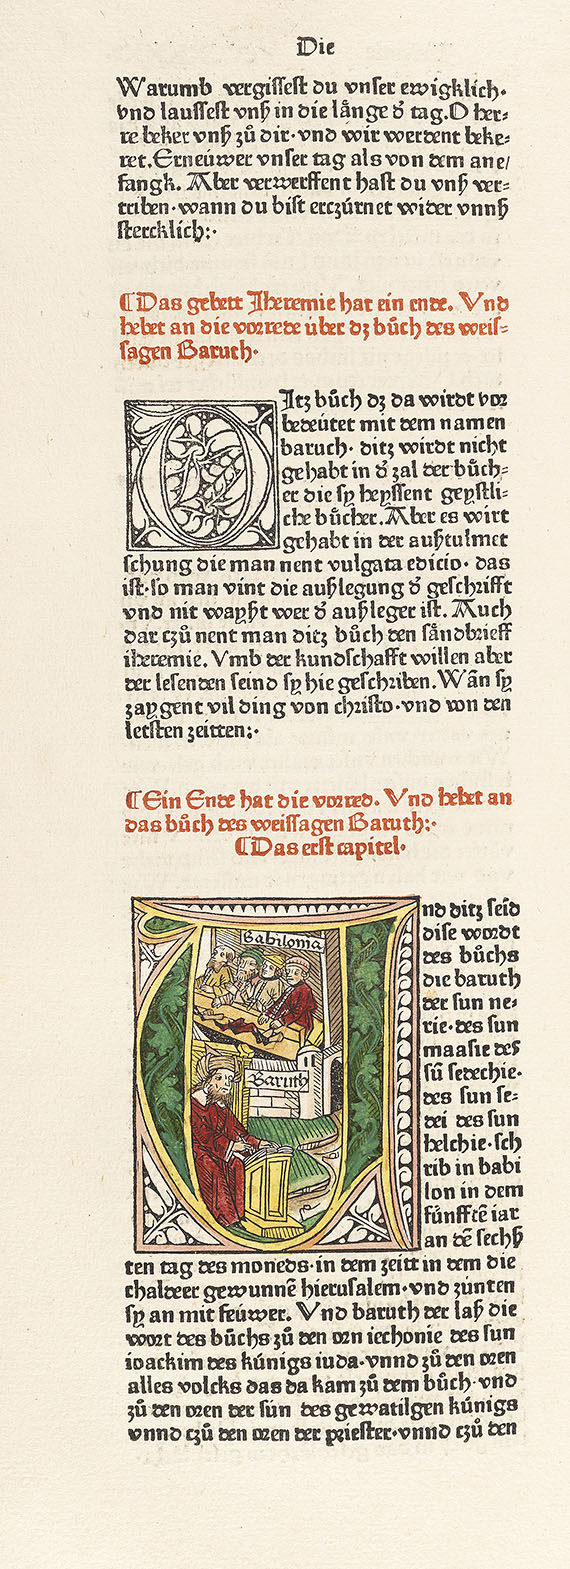 Die
Warumb vergissest du vnser ewigklich.
vnd laussest vnß in die långe d̕ tag. O her-
re beker vnß zů dir·vnd wir werdent beke-
ret. Erneüwer vnser tag als von dem ane/
fangk. Aber verwerffent hast du vnß ver-
triben·wann du bist erczúrnet wider vnnß
stercklich:·
¶Das gebett Jheremie hat ein ende. Vnd
hebet an die vorrede über dz bůch des weis-
sagen Baruch·
Itz bůch dz da wirdt vor
bedeütet mit dem namen
baruch· ditz wirdt nicht
gehabt in d̕ zal der bůch-
er die sy heyssent geystli-
che bůcher. Aber es wirt
gehabt in der außtulmet
schung die man nent vulgata edicio· das
ist·so man vint die außlegung d̕ geschrifft
vnd nit wayßt wer d̕ außleger ist. Auch
dar czů nent man ditz bůch den såndbrieff
iheremie. Vmb der kundschafft willen aber
der lesenden seind sy hie geschriben. Wān sy
zaygent vil ding von christo·vnd von den
letsten zeitten:·
¶Ein Ende hat die vorred. Vnd hebet an
das bůch des weissagen Baruch:·
¶Das erst capitel·
Babilonia
Baruch
nd ditz seid
dise wordt
des bůchs
die baruch
der sun ne-
rie·des sun
maasie des
sū sedechie·
des sun se-
dei des sun
helchie·sch
rib in babi
lon in dem
fünfftē iar
an dē sechß
ten tag des moneds·in dem zeitt in dem die
chaldeer gewunnē hierusalem·vnd zúnten
sy an mit feúwer. Vnd baruch der laß die
wort des bůchs zů den orn iechonie des sun
ioackim des kúnigs iuda·vnnd zů den oren
alles volcks das da kam zů dem bůch·vnd
zů den oren der sún des gewatilgen kúnigs
vnnd czů den oren der priester·vnnd czů den